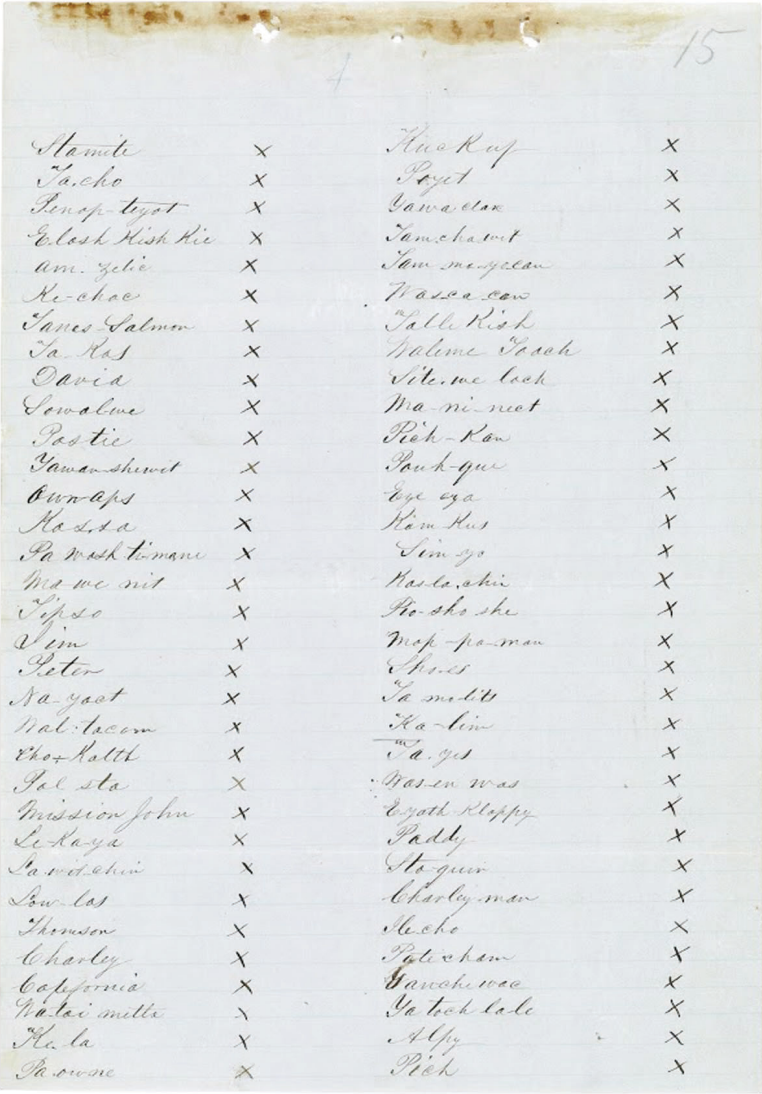 15
Stamite X
Ta.cho X
Penop-teyot X
Elosh Kish Kie X
Am. yelie X
Ke-choc X
Tanes-Salmon X
Ta-Kas X
David X
Sowalwe X
Postie X
Tawan-shewit X
Own aps X
Kassa X
Pa wash ti-mane X
Ma we nit X
Tipso X
Jim X
Peter X
Na-yact X
Wal-tacom X
Cho-Kalth X
Pal sta X
Mission John X
Le-Ka-ya X
La wit-chin X
Low-las X
Thomson X
Charley X
California X
Wa-tai mette X
Ke-la X
Pa-owne X
Kuckup X
Poyet X
Yawa clax X
Tam.chawit X
Tam-mo-yecan X
Wasca-can X
Table Kish X
Walime Tooch X
Site-we loch X
Ma-ni-nect X
Pich-Kan X
Pouh-que X
Eye eya X
Kam Kus X
Sim-yo X
Kas-la.chie X
Ro-sho she X
Mop-pa-man X
Shoes X
Ta molits X
Ka-lim X
Ta.yes X
Was-en was X
Eyoth-Klappy X
Paddy X
Sta-quin X
Charley-man X
He.cho X
Pate-cham X
Yawche wac X
Ya toch lale X
Alpy X
Pich X